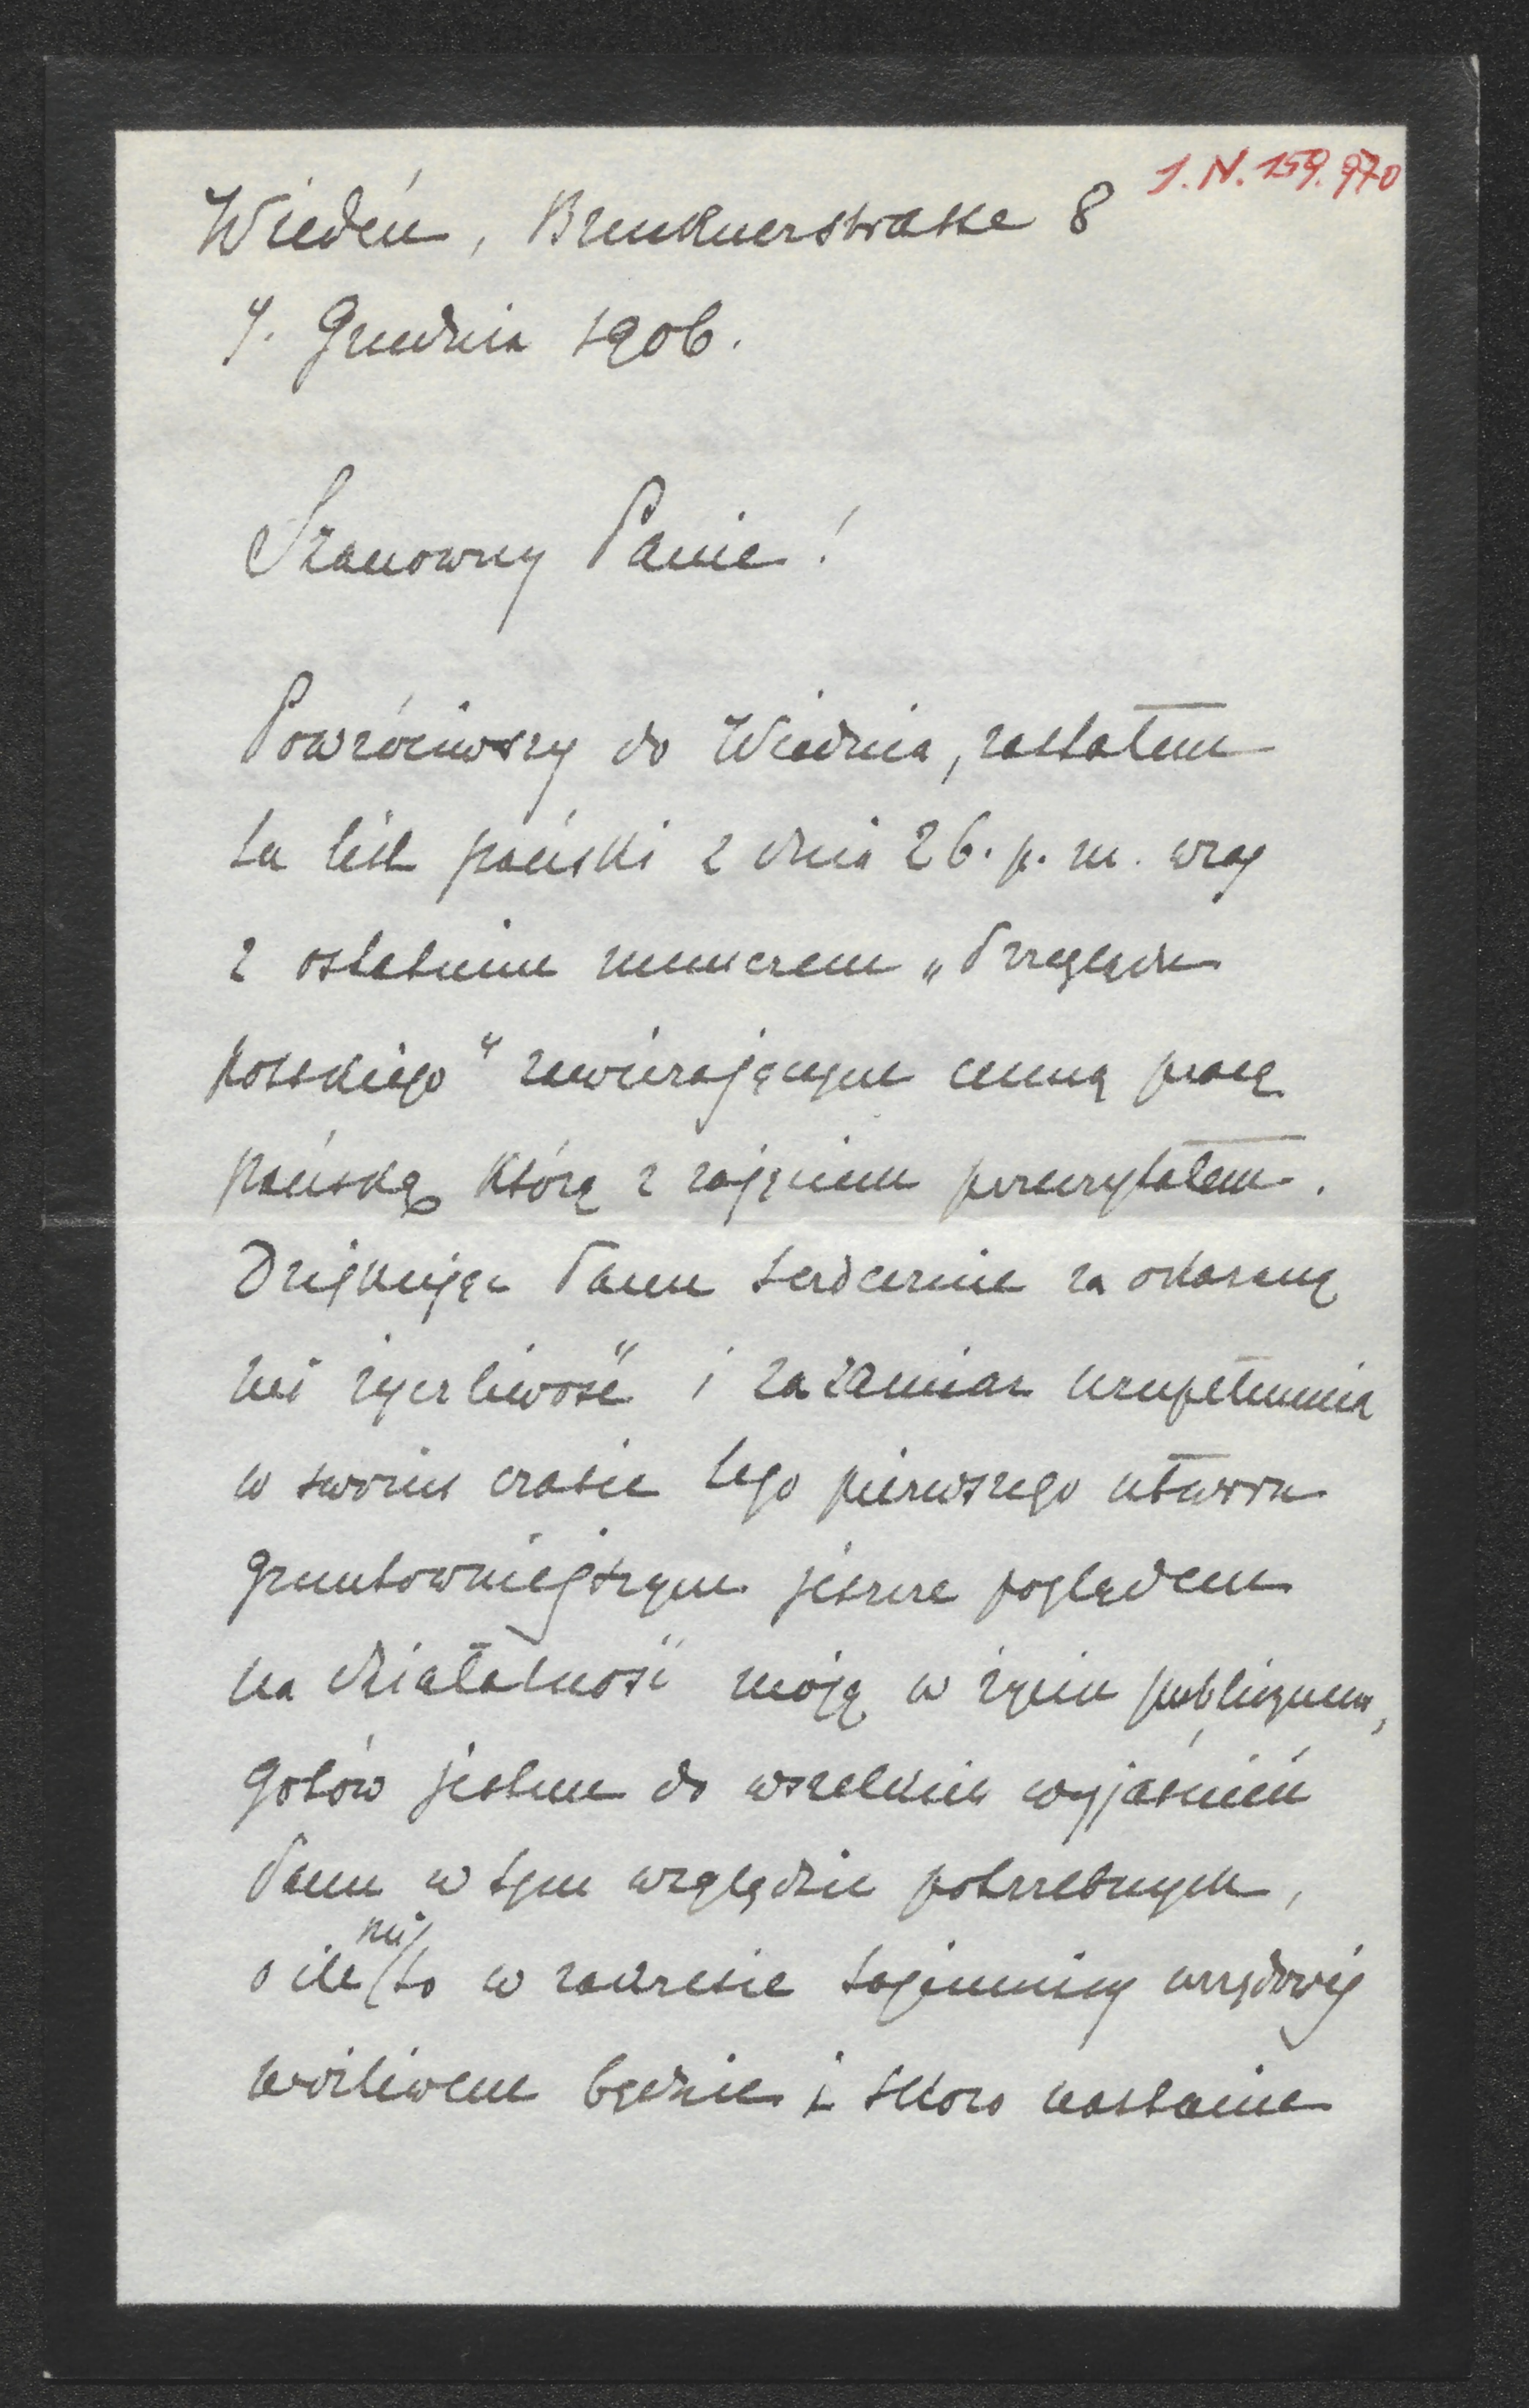 I. N. 159.970
Wiedeń, Brucknerstrasse 8
9. Grudnia 1906.
Szanowny Panie!
Powróciwszy do Wiednia, zastałem
tu list pański z dnia 26. p. m. wraz
z ostatnim numerem „Przeglądu
polskiego" zawierającym cenną pracę
pańską, którą z zajęciem przeczytałem.
Dziękując Panu serdecznie za okazaną
mi życzliwość i za zamiar uzupełnienia
w swoim czasie tego pierwszego utworu
gruntowniejszym jeszcze poglądem
na działalność moją w życiu publicznem,
gotów jestem do wszelkich wyjaśnień
Panu w tym względzie potrzebnych,
o ile mi to w zakresie tajemnicy urzędowej
możliwem będzie i skoro nastanie